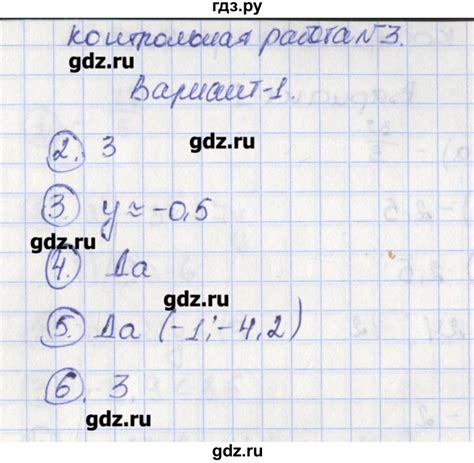 гдз.ру
контрольная работа №3.
gdz.ru
Вариант-1.
gdz.ru
2. 3
3. y ≈ -0,5
gdz.ru
4. Да
gdz.ru
5. Да (-1; -4,2)
6. 3
gdz.ru
gdz.ru